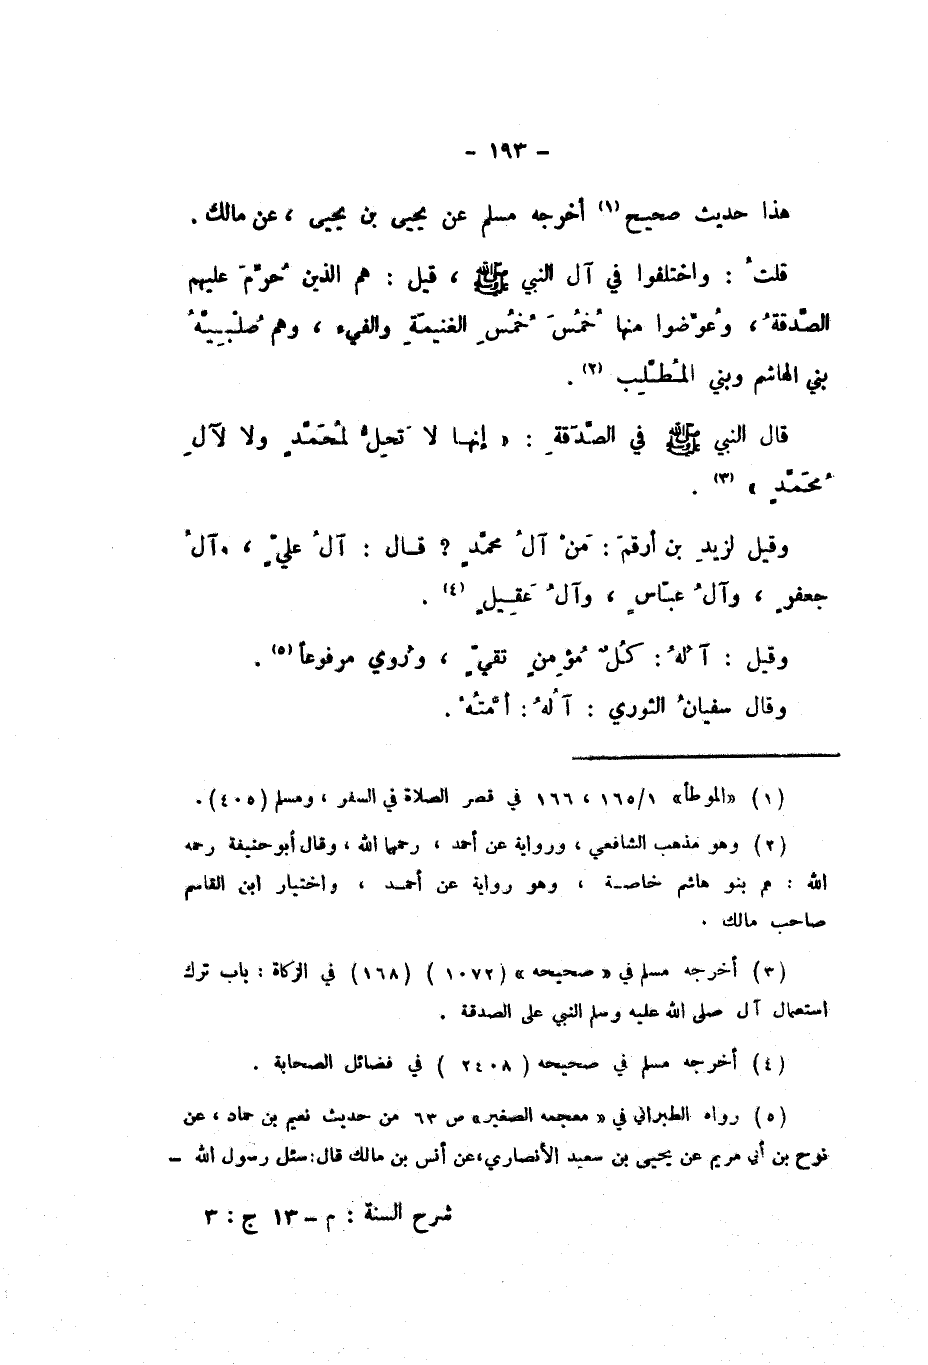 - ١٩٣ -
هذا حديث صحيح (١) أخرجه مسلم عن يحيى بن يحيى ، عن مالك .
قلتُ : واختلفوا في آل النبي ﷺ ، قيل : هم الذين حُرِّمَ عليهم
الصَّدقةُ ، وعُوِّضوا منها خُمُسَ خُمُسِ الغنيمَةِ والفيء ، وهم صُلْبِيَّةُ
بني الهاشم وبني المُطَّلِب (٢) .
قال النبي ﷺ في الصَّدَقةِ : « إنهـا لا تَحِلُّ لمُحَمَّدٍ ولا لآلِ
مُحَمَّدٍ » (٣) .
وقيل لزيدِ بن أرقمَ : مَنْ آلُ محمَّدٍ ? قـال : آلُ عليٍّ ، وآلُ
جعفرٍ ، وآلُ عبّاسٍ ، وآلُ عَقِيلٍ (٤) .
وقيل : آلُهُ : كلُّ مُؤمِنٍ تقيٍّ ، ورُوي مرفوعاً (٥) .
وقال سفيانُ الثوري : آلُهُ : أمَّتُهُ .
(١) «الموطأ» ١/١٦٥ ، ١٦٦ في قصر الصلاة في السفر ، ومسلم (٤٠٥) .
(٢) وهو مذهب الشافعي ، ورواية عن أحمد ، رحمهما الله ، وقال أبو حنيفة رحمه
الله : هم بنو هاشم خاصـة ، وهو رواية عن أحمـد ، واختيار ابن القاسم
صاحب مالك .
(٣) أخرجه مسلم في « صحيحه » (١٠٧٢) (١٦٨) في الزكاة : باب ترك
استعمال آل صلى الله عليه وسلم النبي على الصدقة .
(٤) أخرجه مسلم في صحيحه ( ٢٤٠٨ ) في فضائل الصحابة .
(٥) رواه الطبراني في « معجمه الصغير» ص ٦٣ من حديث نعيم بن حماد ، عن
نوح بن أبي مريم عن يحيى بن سعيد الأنصاري،عن أنس بن مالك قال:سئل رسول الله –
شرح السنة : م – ١٣ ج : ٣